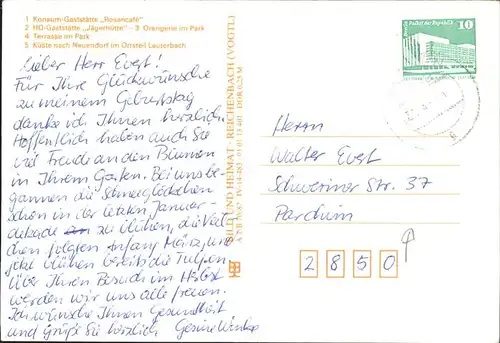 1 Konsum-Gaststätte „Rosencafé"
2 HO-Gaststätte „Jägerhütte" - 3 Orangerie im Park
4 Terrasse im Park
5 Küste nach Neuendorf im Ortsteil Lauterbach
Lieber Herr Evert!
Für Ihre Glückwünsche
zu meinem Geburtstag
danke ich Ihnen herzlich.
Hoffentlich haben auch Sie
viel Freude an den Blumen
in Ihrem Garten. Bei uns be-
gannen die Schneeglöckchen
schon in der letzten Januar-
dekade zu blühen, die Veil-
chen folgten Anfang März, und
jetzt blühen bereits die Tulpen.
Über Ihren Besuch im Herbst
werden wir uns alle freuen.
Ich wünsche Ihnen Gesundheit
und grüße Sie herzlich Gesine
BILD UND HEIMAT · REICHENBACH (VOGTL)
01 01 13 401 DDR 0,25 M
Palast der Republik
10
DDR
Herrn
Walter Evert
Schweriner Str. 37
Parchim
2850